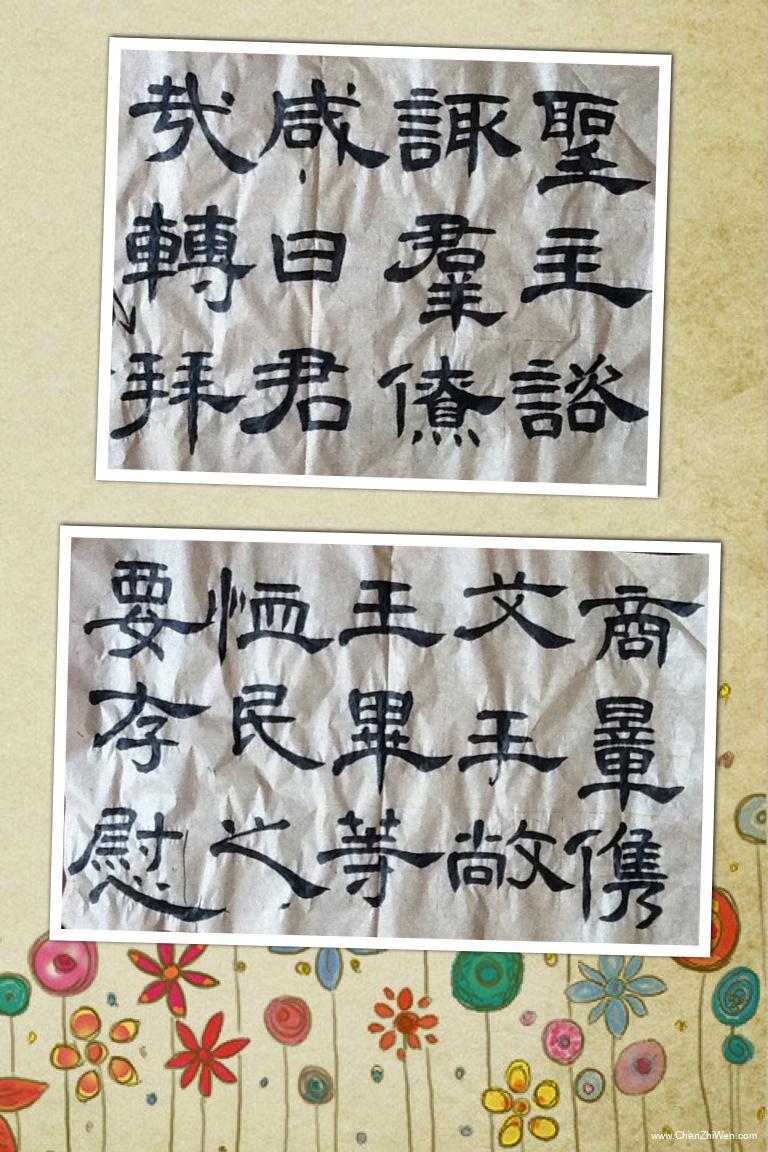 聖主諮
諏羣僚
咸曰君
哉轉拜
商量儁
艾手敞
王畢等
恤民之
要存慰
www.ChenZhiWen.com